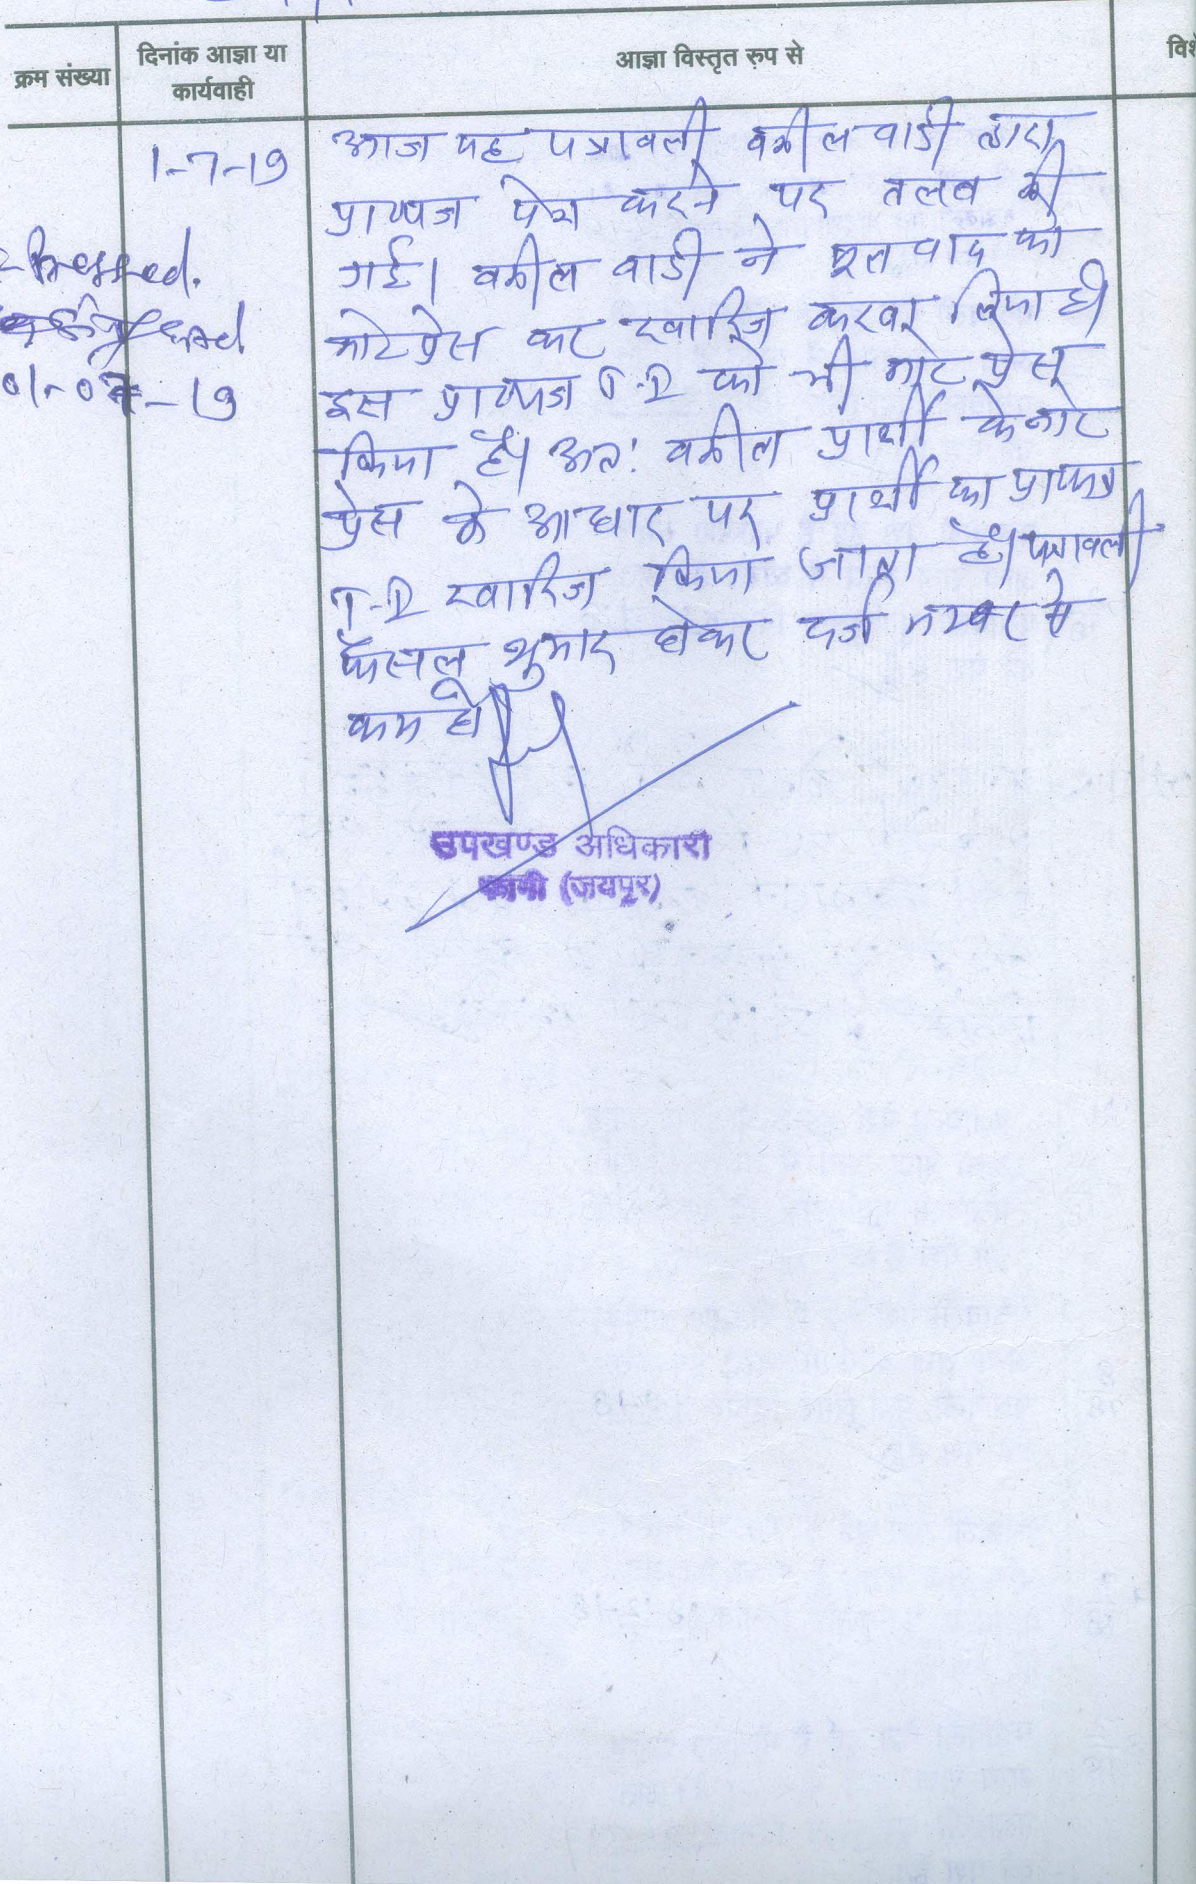 क्रम संख्या
दिनांक आज्ञा या
कार्यवाही
आज्ञा विस्तृत रुप से
1-7-19
आज यह पत्रावली वकील वादी द्वारा
प्रा०पत्र पेश करने पर तलब की
गई। वकील वादी ने मूल वाद को
नोटप्रेस कर खारिज करवा लिया है।
इस प्रा०पत्र T-R को भी नोट प्रेस
किया है। अतः वकील प्रार्थी के नोट
प्रेस के आधार पर प्रार्थी का प्रा०पत्र
T-R खारिज किया जाता है। पत्रावली
फैसल शुमार होकर दर्ज नम्बर से
कम हो।
Pressed.
01-07-19
उपखण्ड अधिकारी
(जयपुर)